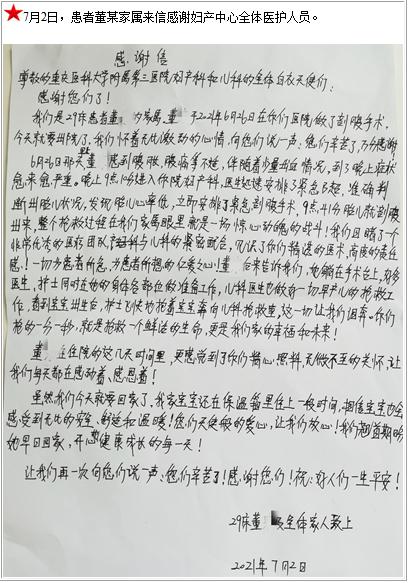 7月2日，患者董某家属来信感谢妇产中心全体医护人员。
感谢信
尊敬的重庆医科大学附属第三医院妇产科和儿科的全体白衣天使们：
感谢您们了！
我们是29床患者董 家属，董 于2021年6月26日在你们医院做了剖腹手术，
今天就要出院了，我们怀着无比激动的心情，向您们说一声：您们辛苦了，万分感谢
6月26日那天董 感到腹胀，腹痛等不适，伴随着少量出血情况，到了晚上症状
愈来愈严重。晚上9点10分进入你院妇产科，医生迅速安排了紧急B超，准确判
断出胎儿状况，发现胎儿心率低，立即安排了紧急剖腹手术，9点41分胎儿就剖腹
出来，整个抢救过程在我们家属眼里就是一场惊心动魄的战斗！我们目睹了一个
非常优秀的医疗团队，妇科与儿科的紧密配合，见识了你们精湛的医术，高度的责任
感！一切为患者所急，为患者所想的仁爱之心！董 后来告诉我们，她躺在手术台上，好多
医生，护士同时在她的身体各部位做准备工作，儿科医生也做好一切早产儿的抢救工
作，看到宝宝出生后，护士飞快地抢着宝宝奔向儿科抢救室，这一切让我们泪奔。你们
抢的一分一秒，就是抢救一个鲜活的生命，更是我们家的幸福和未来！
董 在住院的这几天时间里，更感觉到了你们精心照料，无微不至的关怀，让
我们每天都在感动着，感恩着！
虽然我们今天就要回家了，我家宝宝还在保温箱里住上一段时间，相信宝宝也会
感受到无比的安全、舒适和温暖！您们天使般的爱心，让我们放心！我们期盼
她早日回家，开心健康成长的每一天！
让我们再一次向们说一声：您们辛苦了！感谢您们！祝：好人们一生平安！
29床董 及全体家人敬上
2021年7月2日